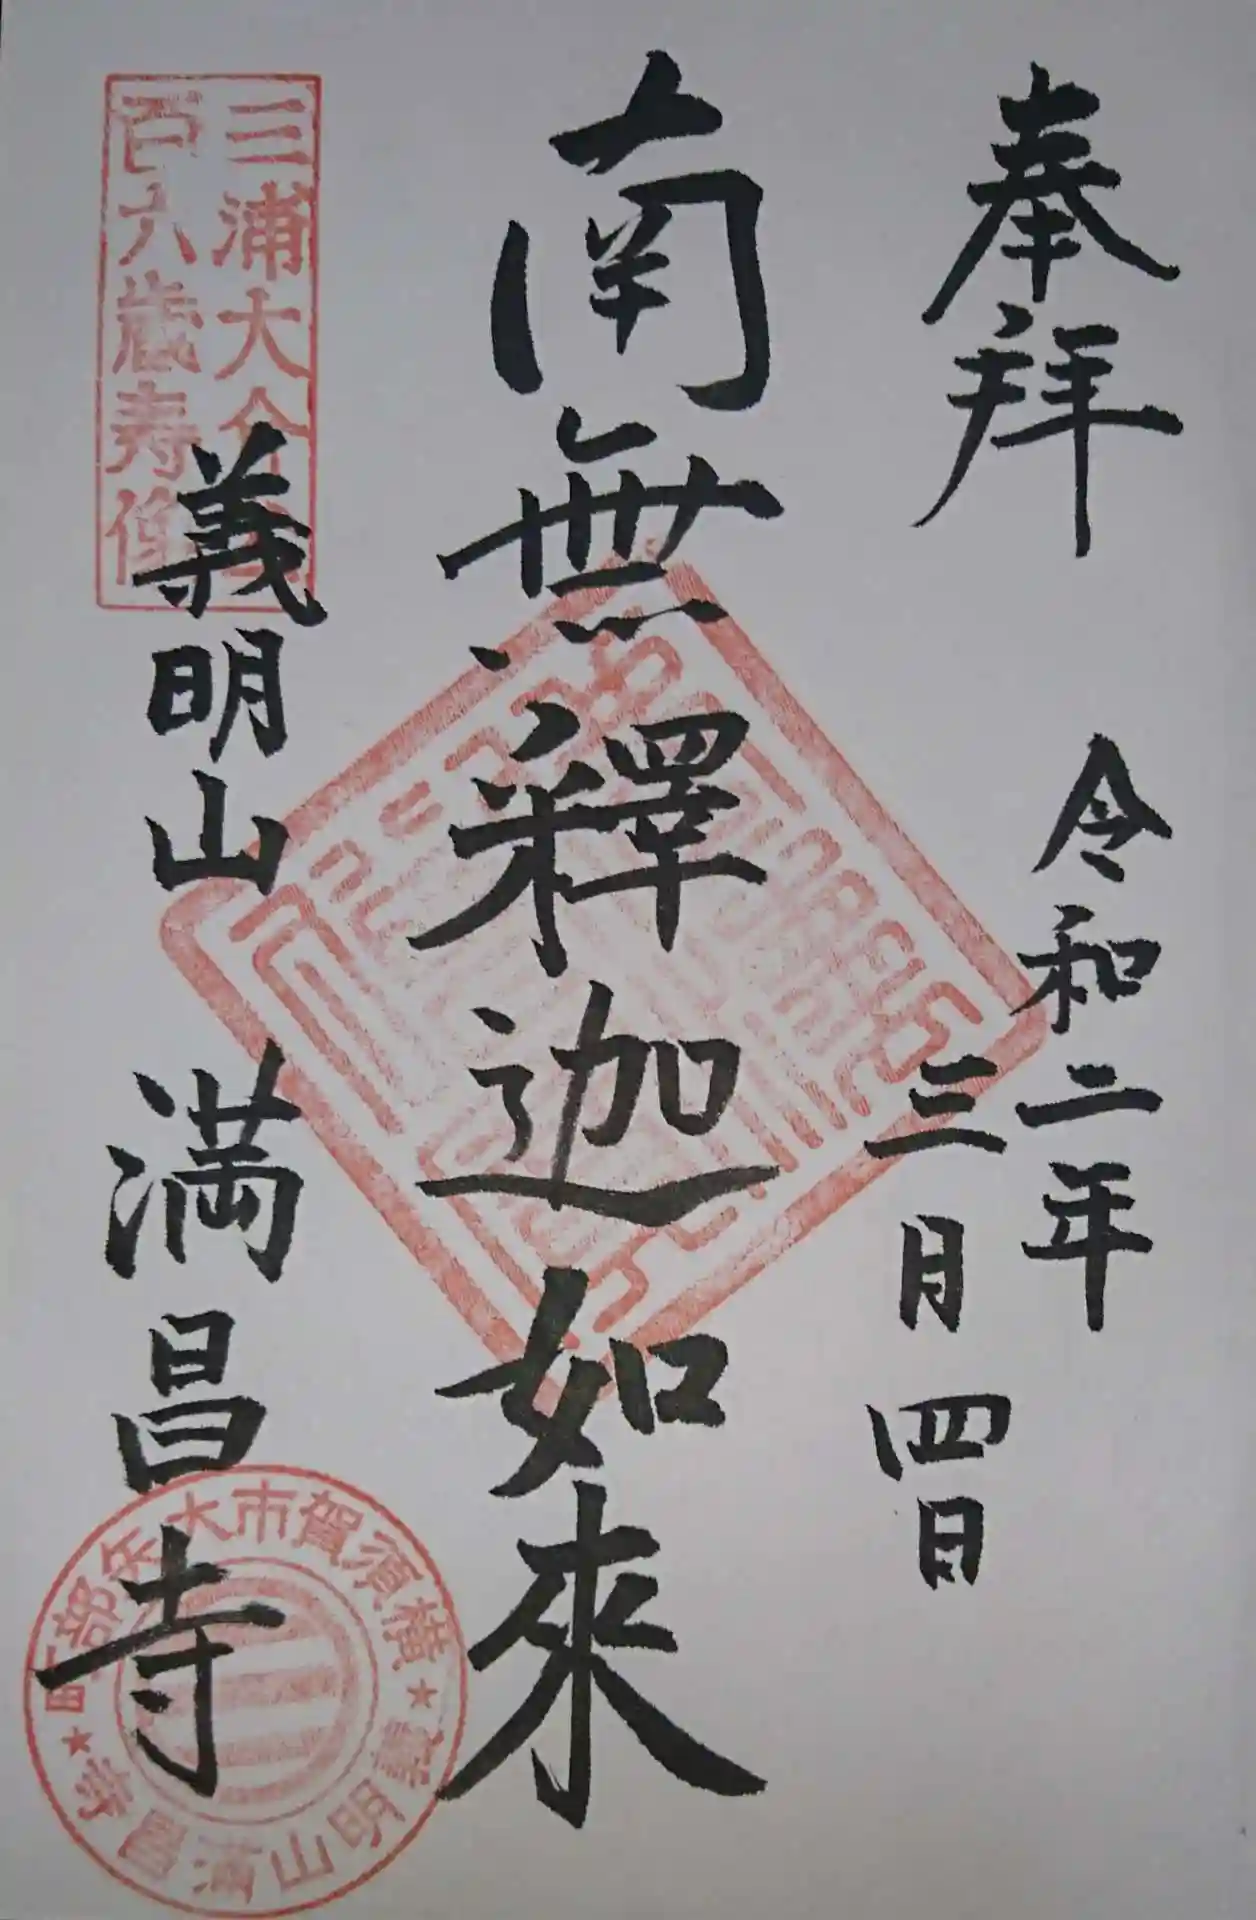 奉拝
令和二年
三月四日
南無釋迦如來
三浦大介
百六歳寿像
義明山 満昌寺
横須賀市大矢部町
義明山満昌寺